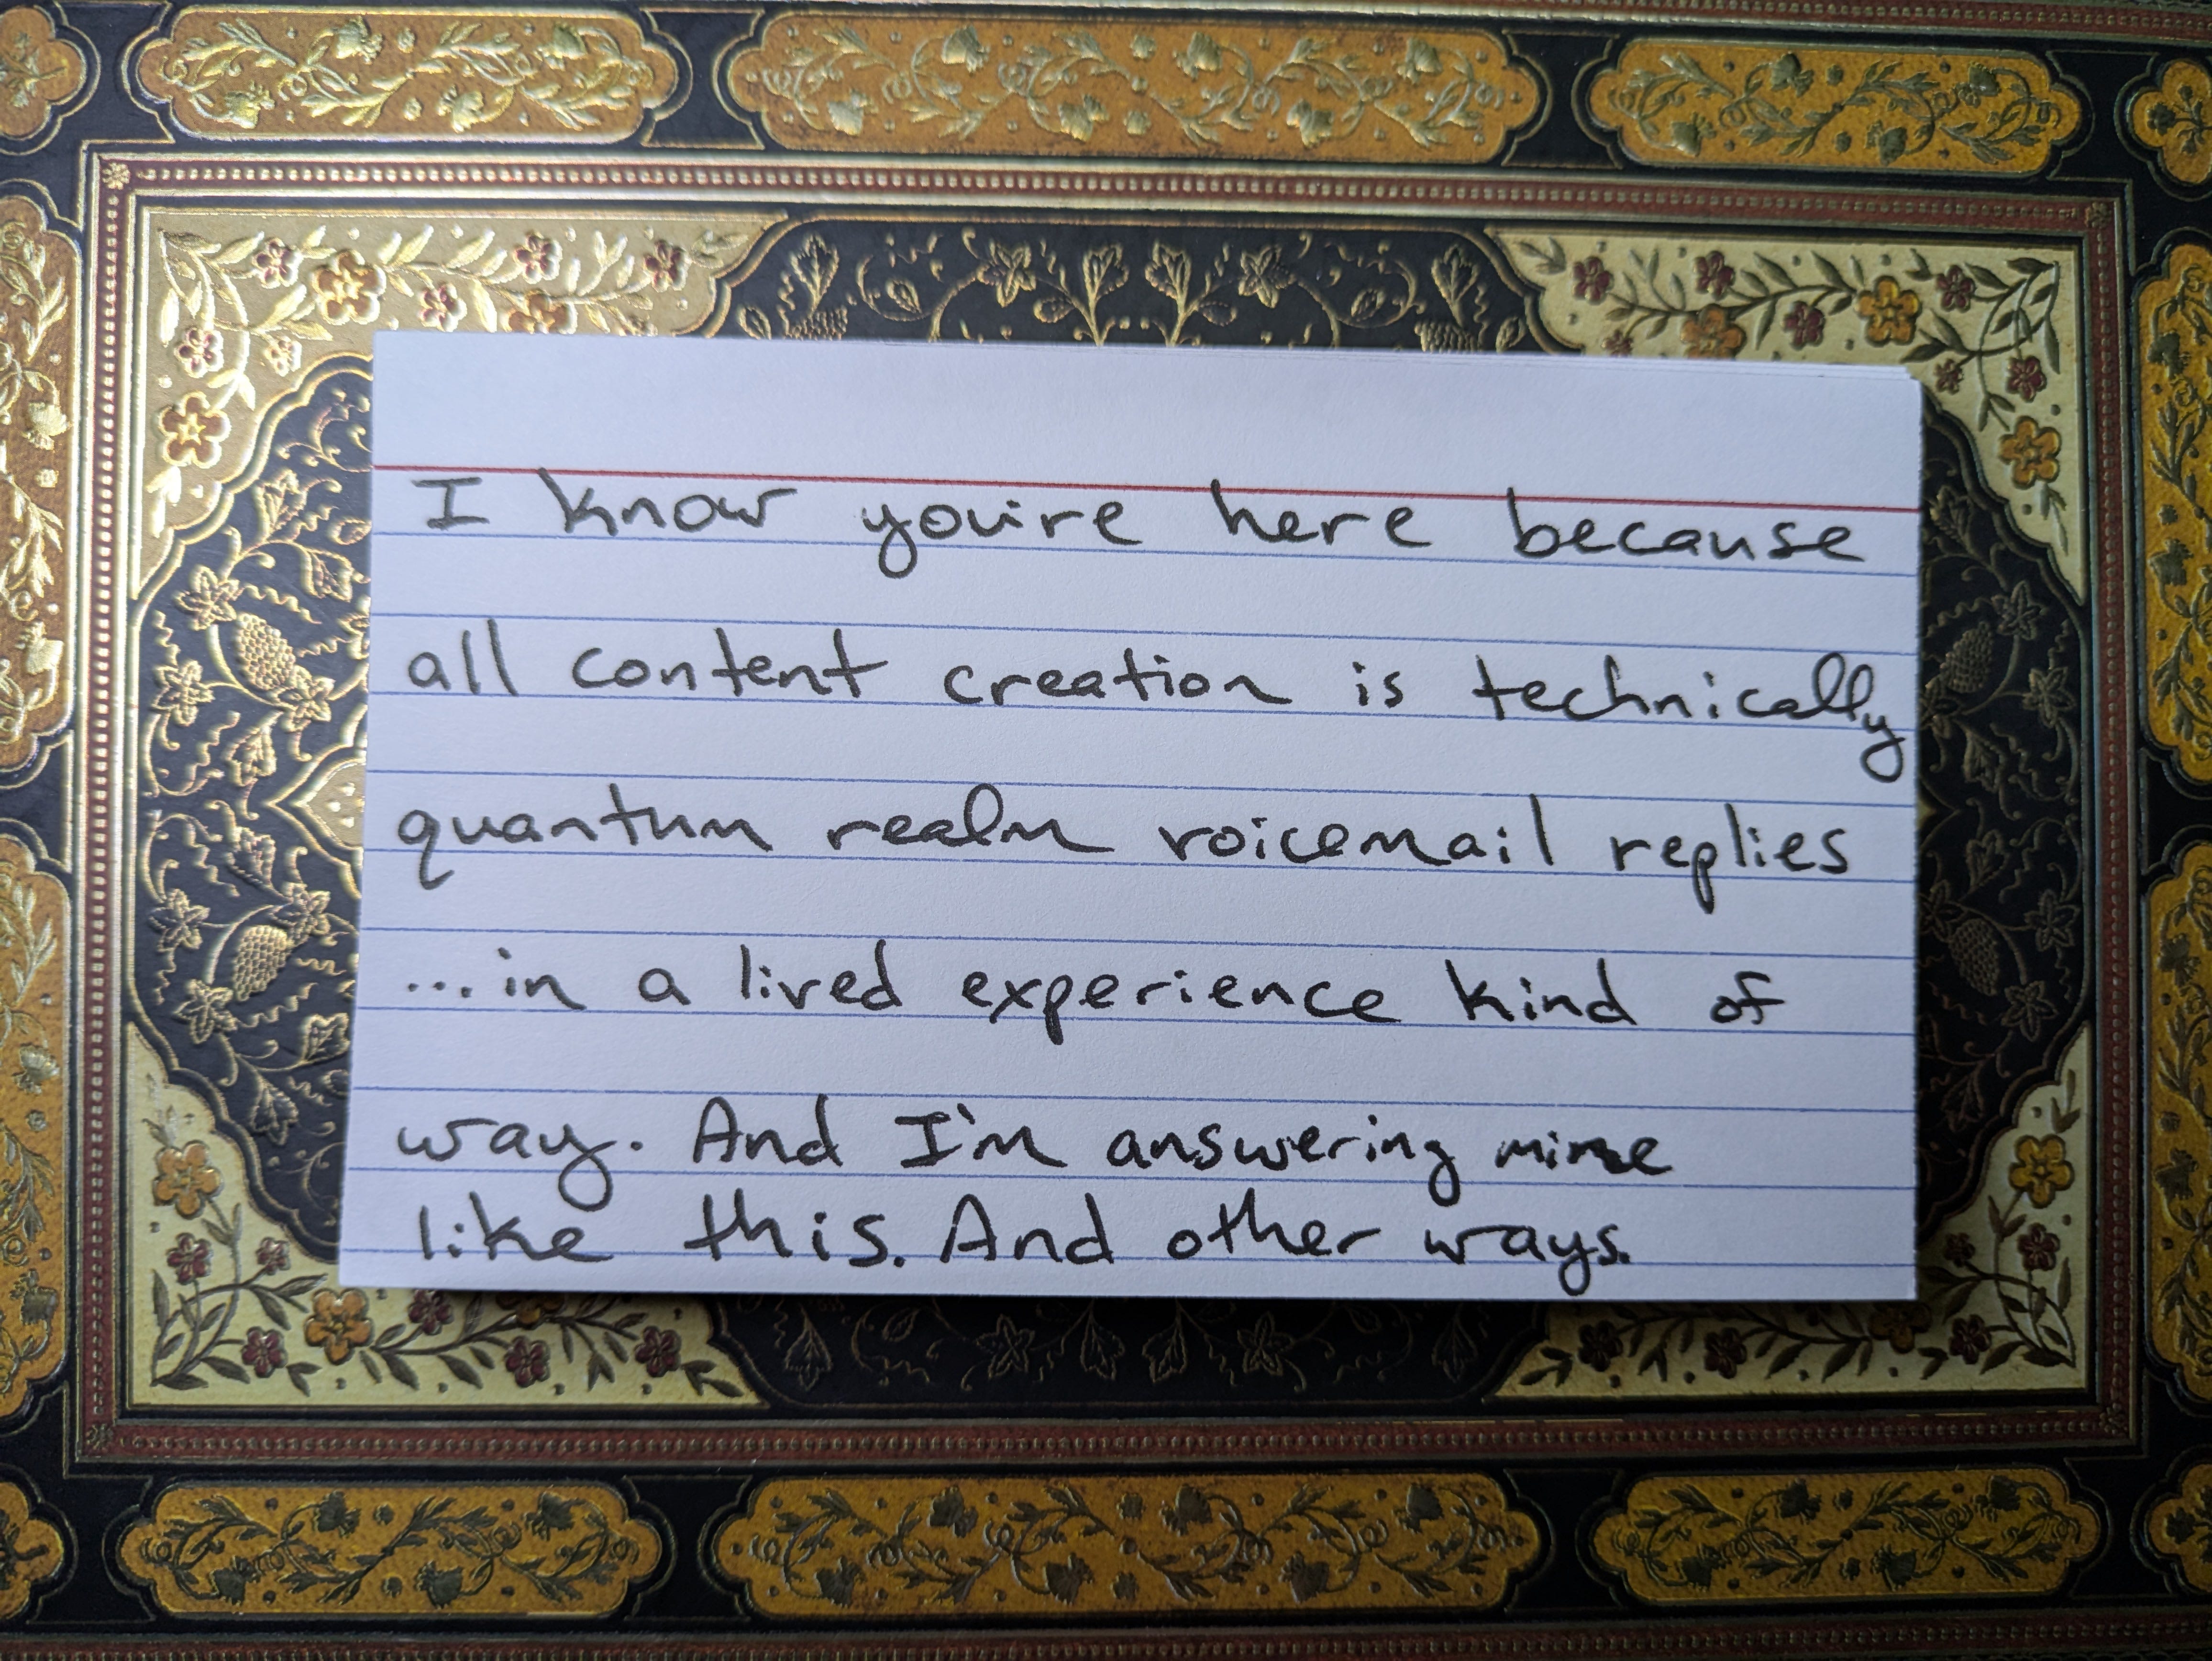 I know you're here because
all content creation is technically
quantum realm voicemail replies
...in a lived experience kind of
way. And I'm answering mine
like this. And other ways.